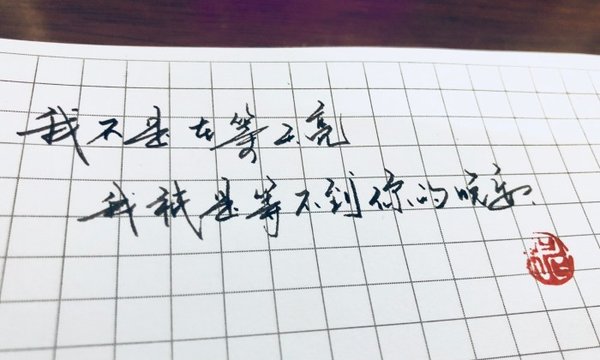 我不是在等天亮
我祇是等不到你的晚安.